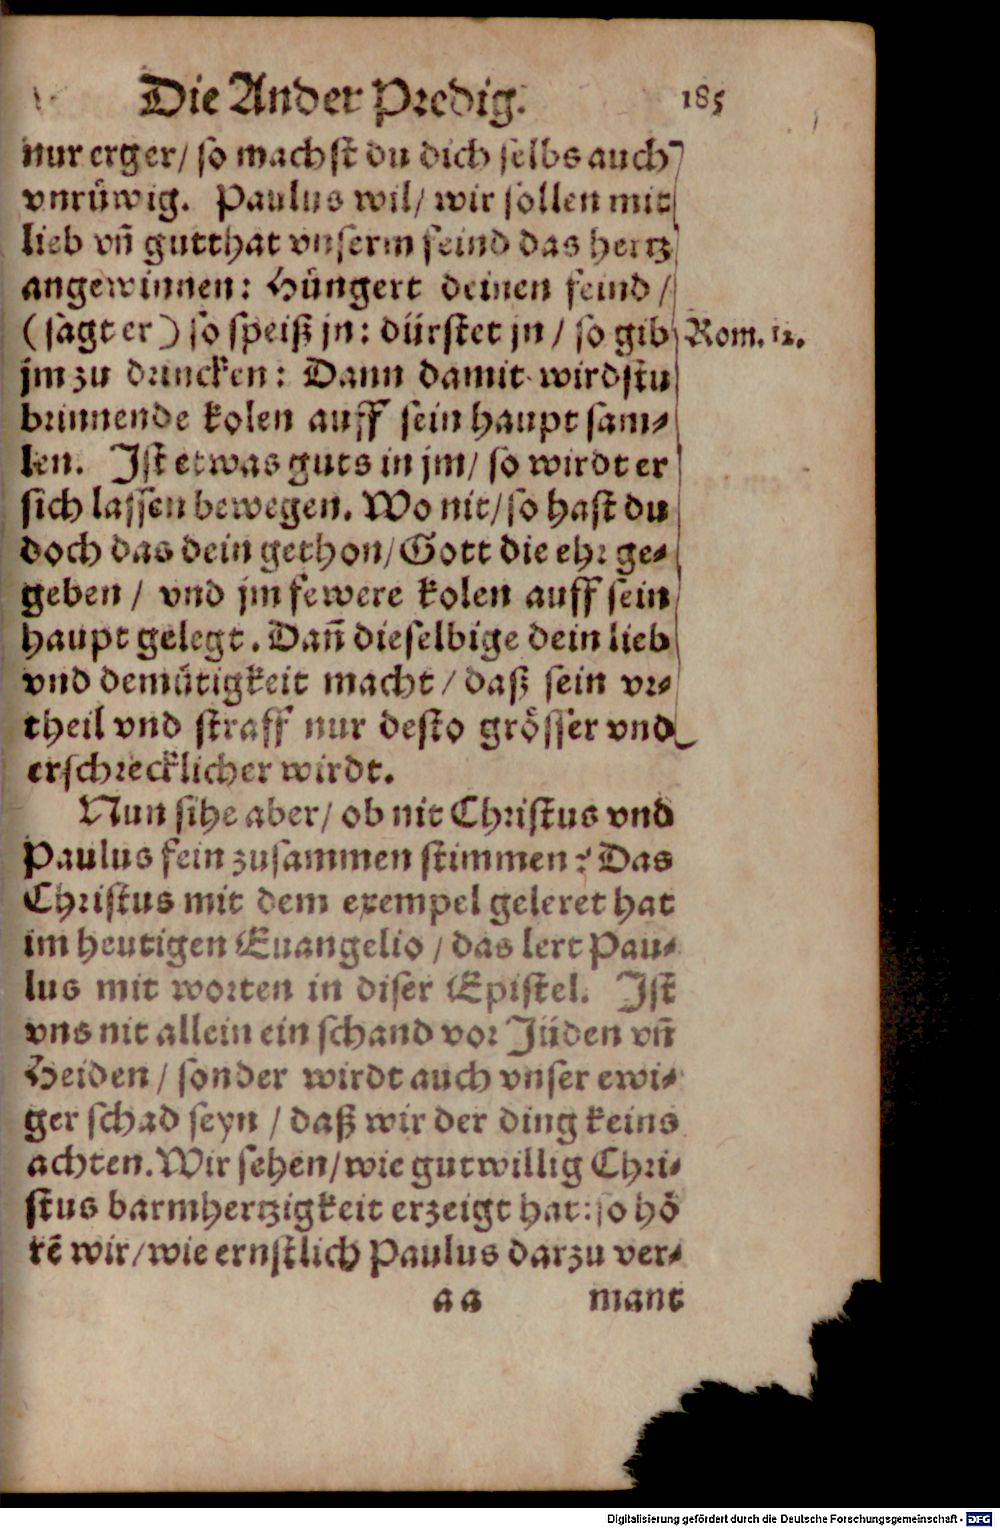 Die Ander Predig. 185
nur erger/ so machst du dich selbs auch
vnrüwig. Paulus wil/ wir sollen mit
lieb vñ gutthat vnserm feind das hertz
angewinnen: Hüngert deinen feind /
(sagt er) so speiß jn: dürstet jn / so gib
Rom. 12.
jm zu drincken: Dann damit wirdstu
brinnende kolen auff sein haupt sam-
len. Ist etwas guts in jm/ so wirdt er
sich lassen bewegen. Wo nit/ so hast du
doch das dein gethon/ Gott die ehr ge-
geben / vnd jm fewere kolen auff sein
haupt gelegt. Dañ dieselbige dein lieb
vnd demütigkeit macht / daß sein vr-
theil vnd straff nur desto grösser vnd
erschrecklicher wirdt.
Nun sihe aber/ ob nit Christus vnd
Paulus fein zusammen stimmen? Das
Christus mit dem exempel geleret hat
im heutigen Euangelio / das lert Pau-
lus mit worten in diser Epistel. Ist
vns nit allein ein schand vor Jüden vñ
Heiden / sonder wirdt auch vnser ewi-
ger schad seyn / daß wir der ding keins
achten. Wir sehen/ wie gutwillig Chri-
stus barmhertzigkeit erzeigt hat: so hö
rē wir/ wie ernstlich Paulus darzu ver-
aa mant
Digitalisierung gefördert durch die Deutsche Forschungsgemeinschaft - DFG